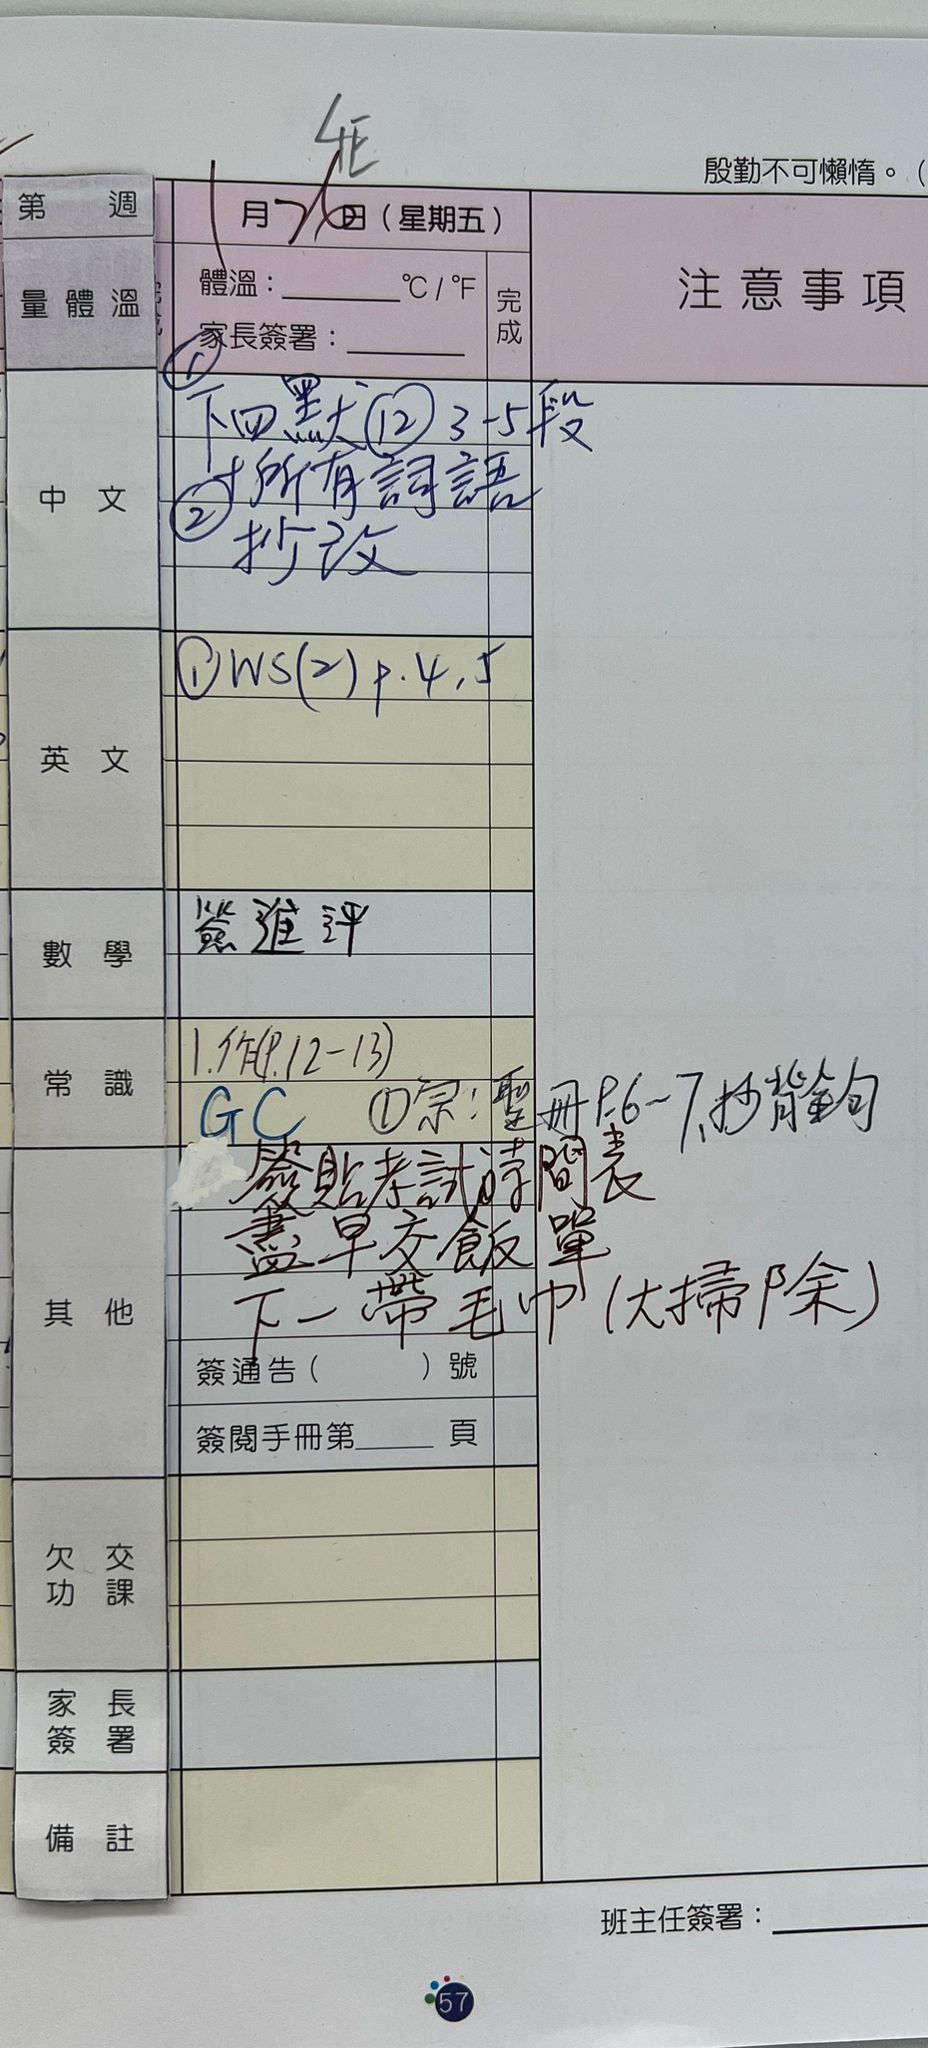 4E
殷勤不可懶惰。（
第 週
1月26日（星期五）
注意事項
量體溫
體溫：______℃/℉
完成
家長簽署：______
中文
① 下四默⑫3-5段
+所有詞語
② 抄改
英文
① WS(2) p.4,5
數學
簽進評
常識
1.作(P.12-13)
GC ①宗：聖冊P.6~7,抄背金句
其他
簽貼考試時間表
盡早交飯單
下一帶毛巾(大掃除)
簽通告（ ）號
簽閱手冊第____頁
欠交功課
家長簽署
備註
班主任簽署：
57